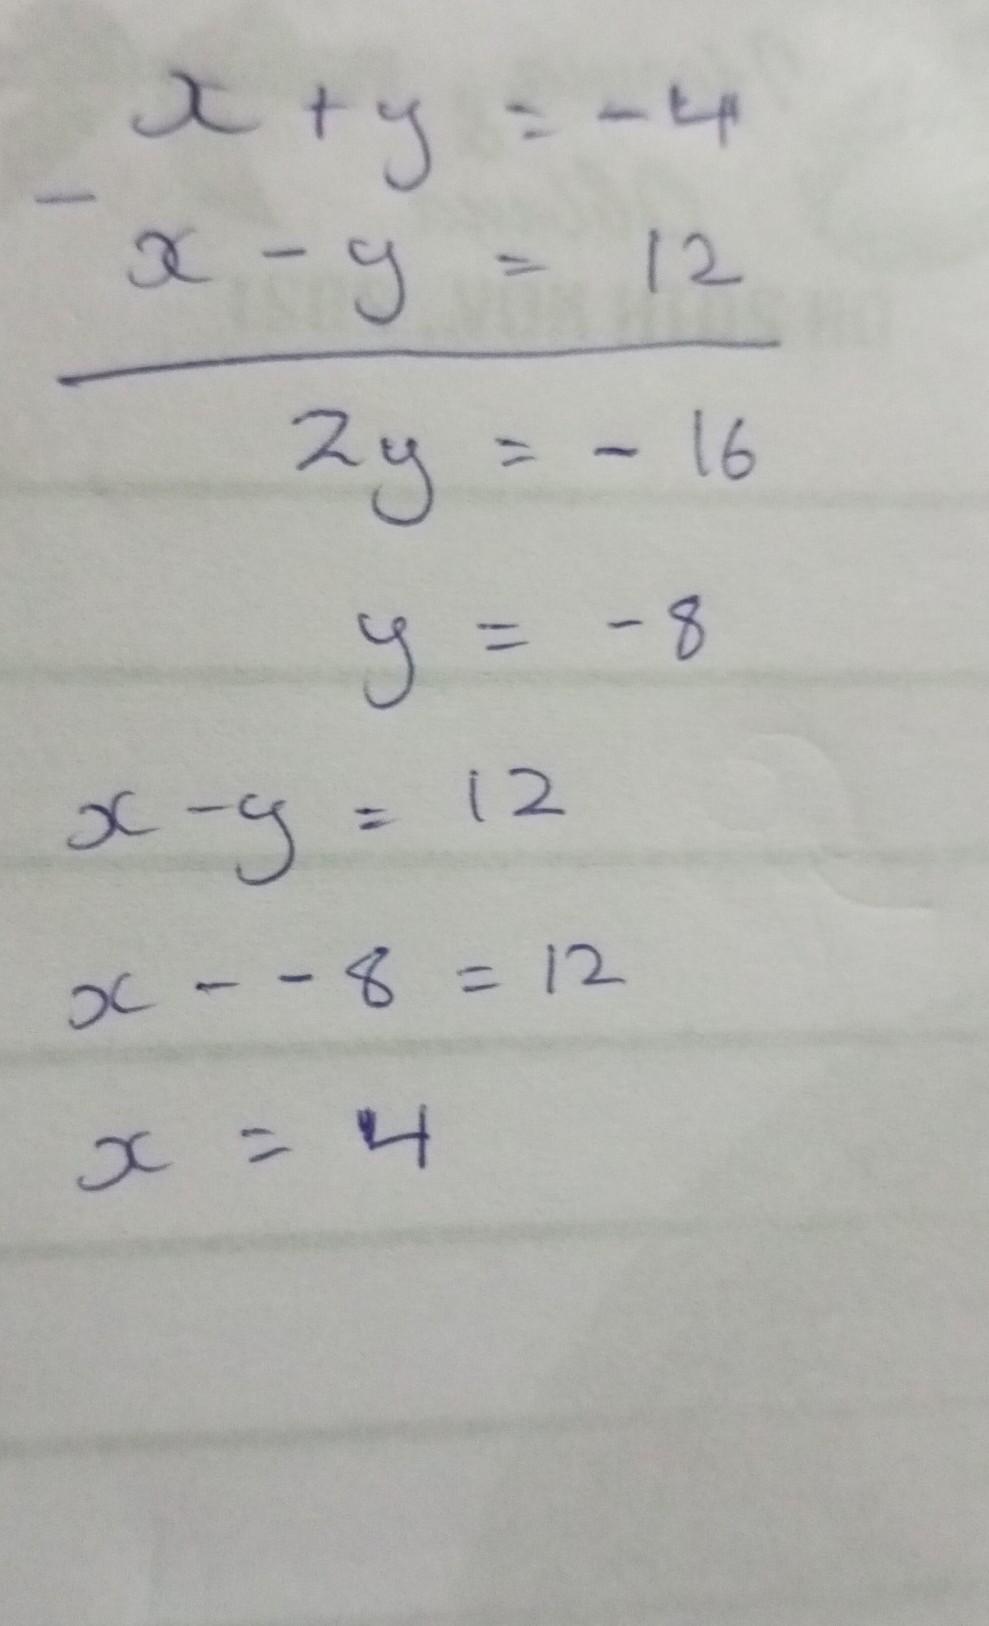 x + y = -4
-
x - y = 12
2y = - 16
y = -8
x - y = 12
x - - 8 = 12
x = 4